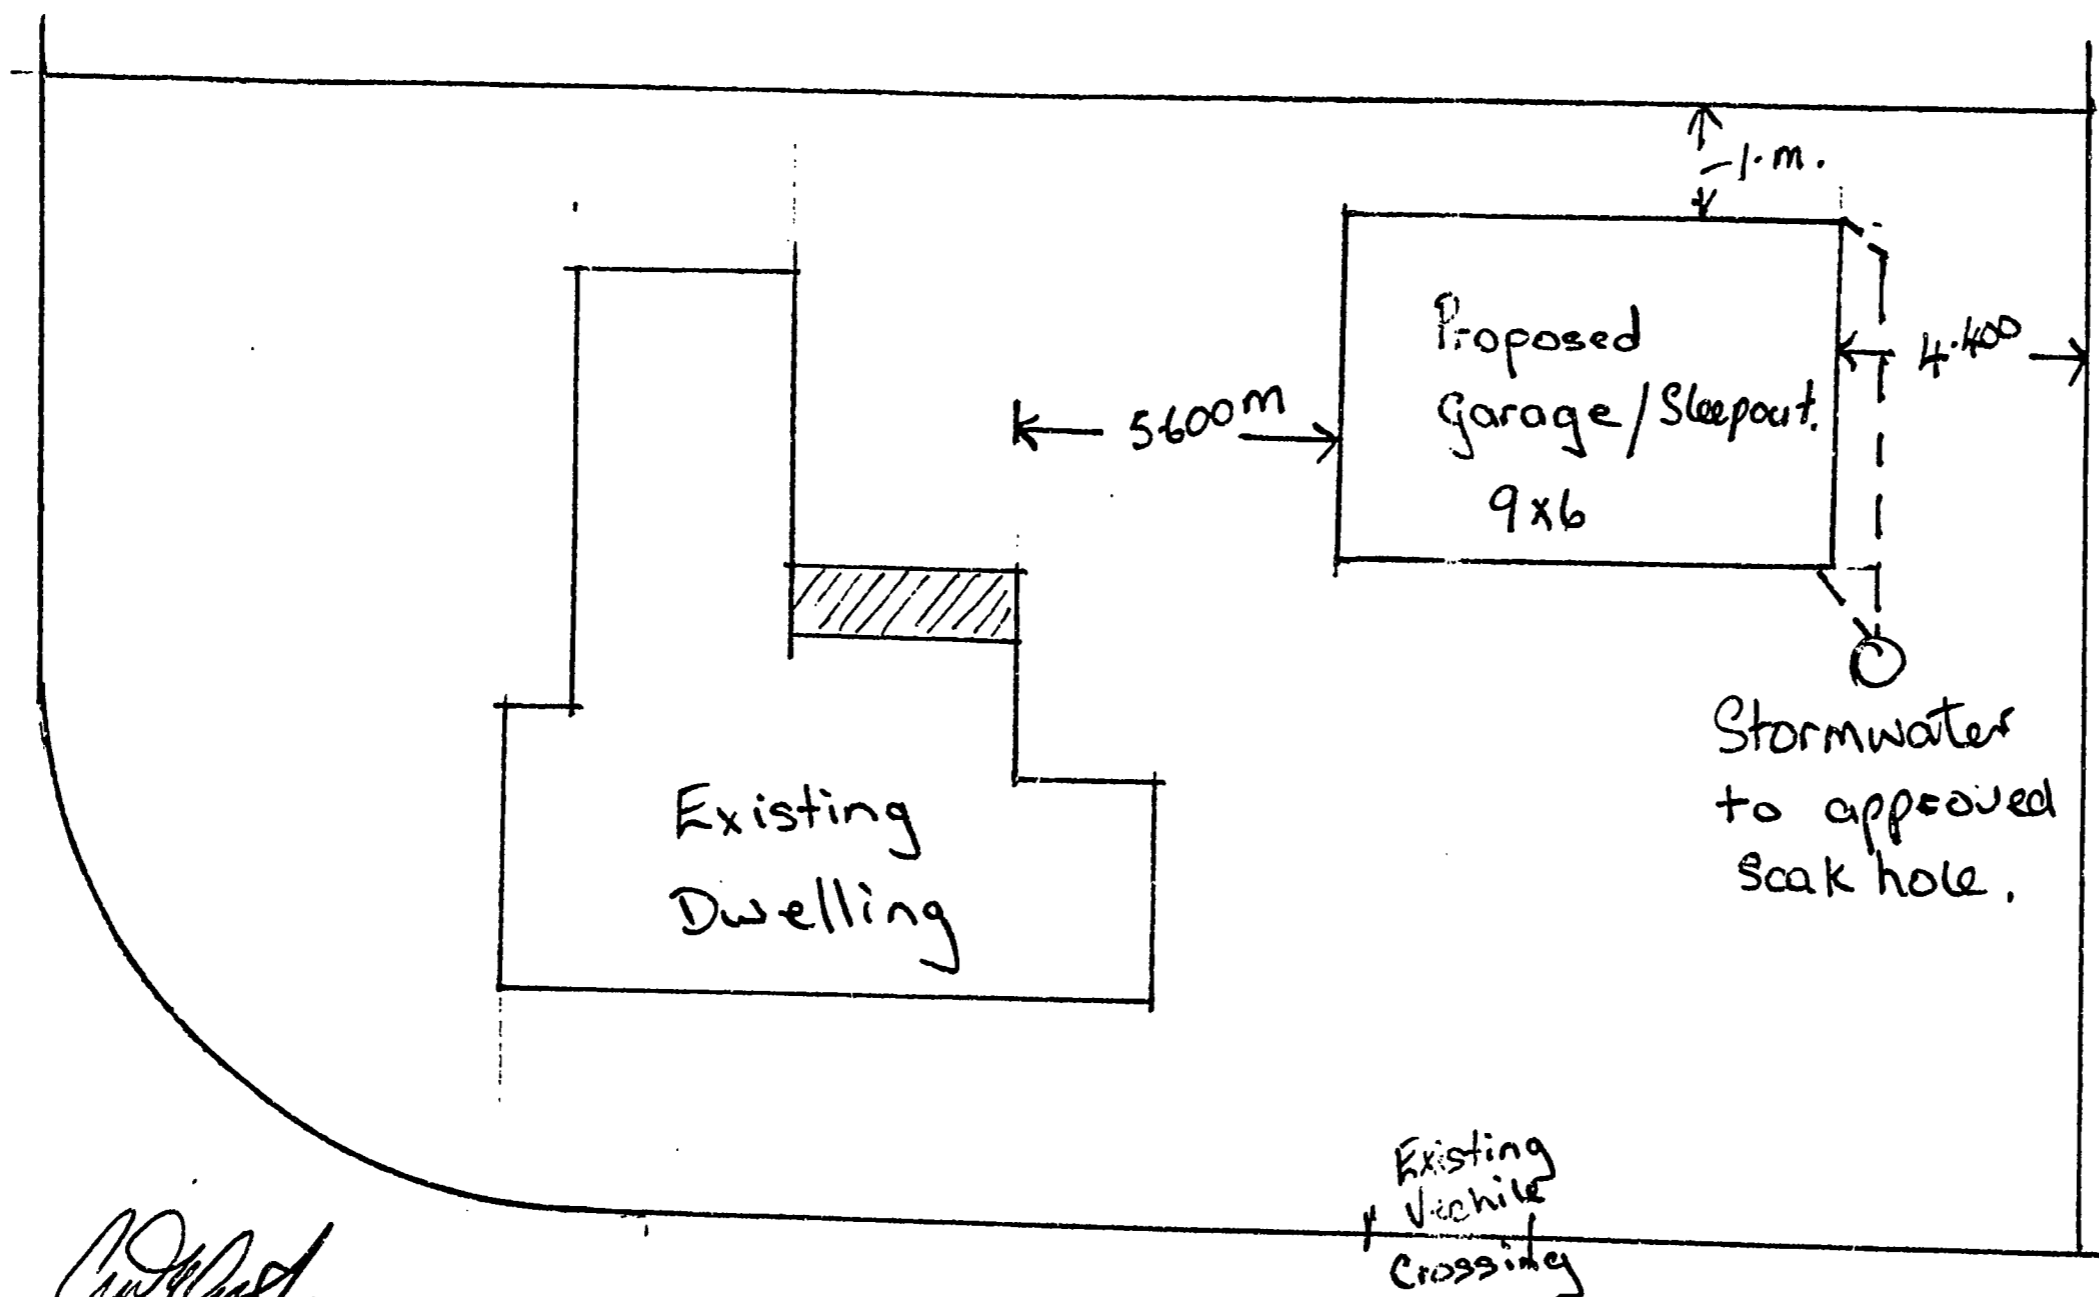 1.m.
Proposed
Garage/Sleepout.
9x6
4.400
5600m
Stormwater
to approved
Soak hole.
Existing
Dwelling
Existing
Vechile
Crossing